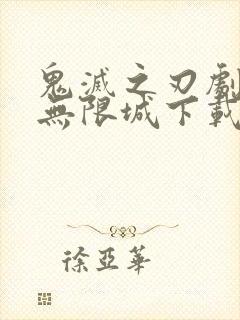 鬼滅之刃劇
無限城下載
徐亞華